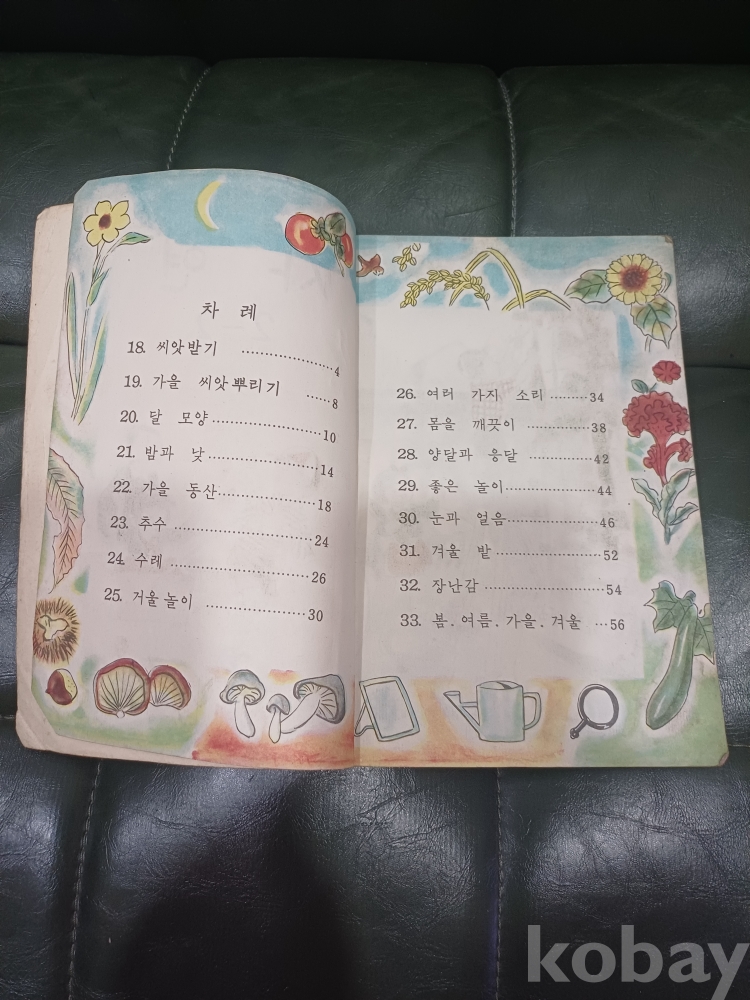 차 례
18. 씨앗받기 ················4
19. 가을 씨앗뿌리기 ······8
20. 달 모양····················10
21. 밤과 낮····················14
22. 가을 동산··················18
23. 추수 ························24
24. 수레 ························26
25. 거울놀이 ··················30
26. 여러 가지 소리 ·········34
27. 몸을 깨끗이 ··············38
28. 양달과 응달 ··············42
29. 좋은 놀이··················44
30. 눈과 얼음··················46
31. 겨울 밭 ····················52
32. 장난감 ······················54
33. 봄. 여름. 가을. 겨울 ···56
kobay